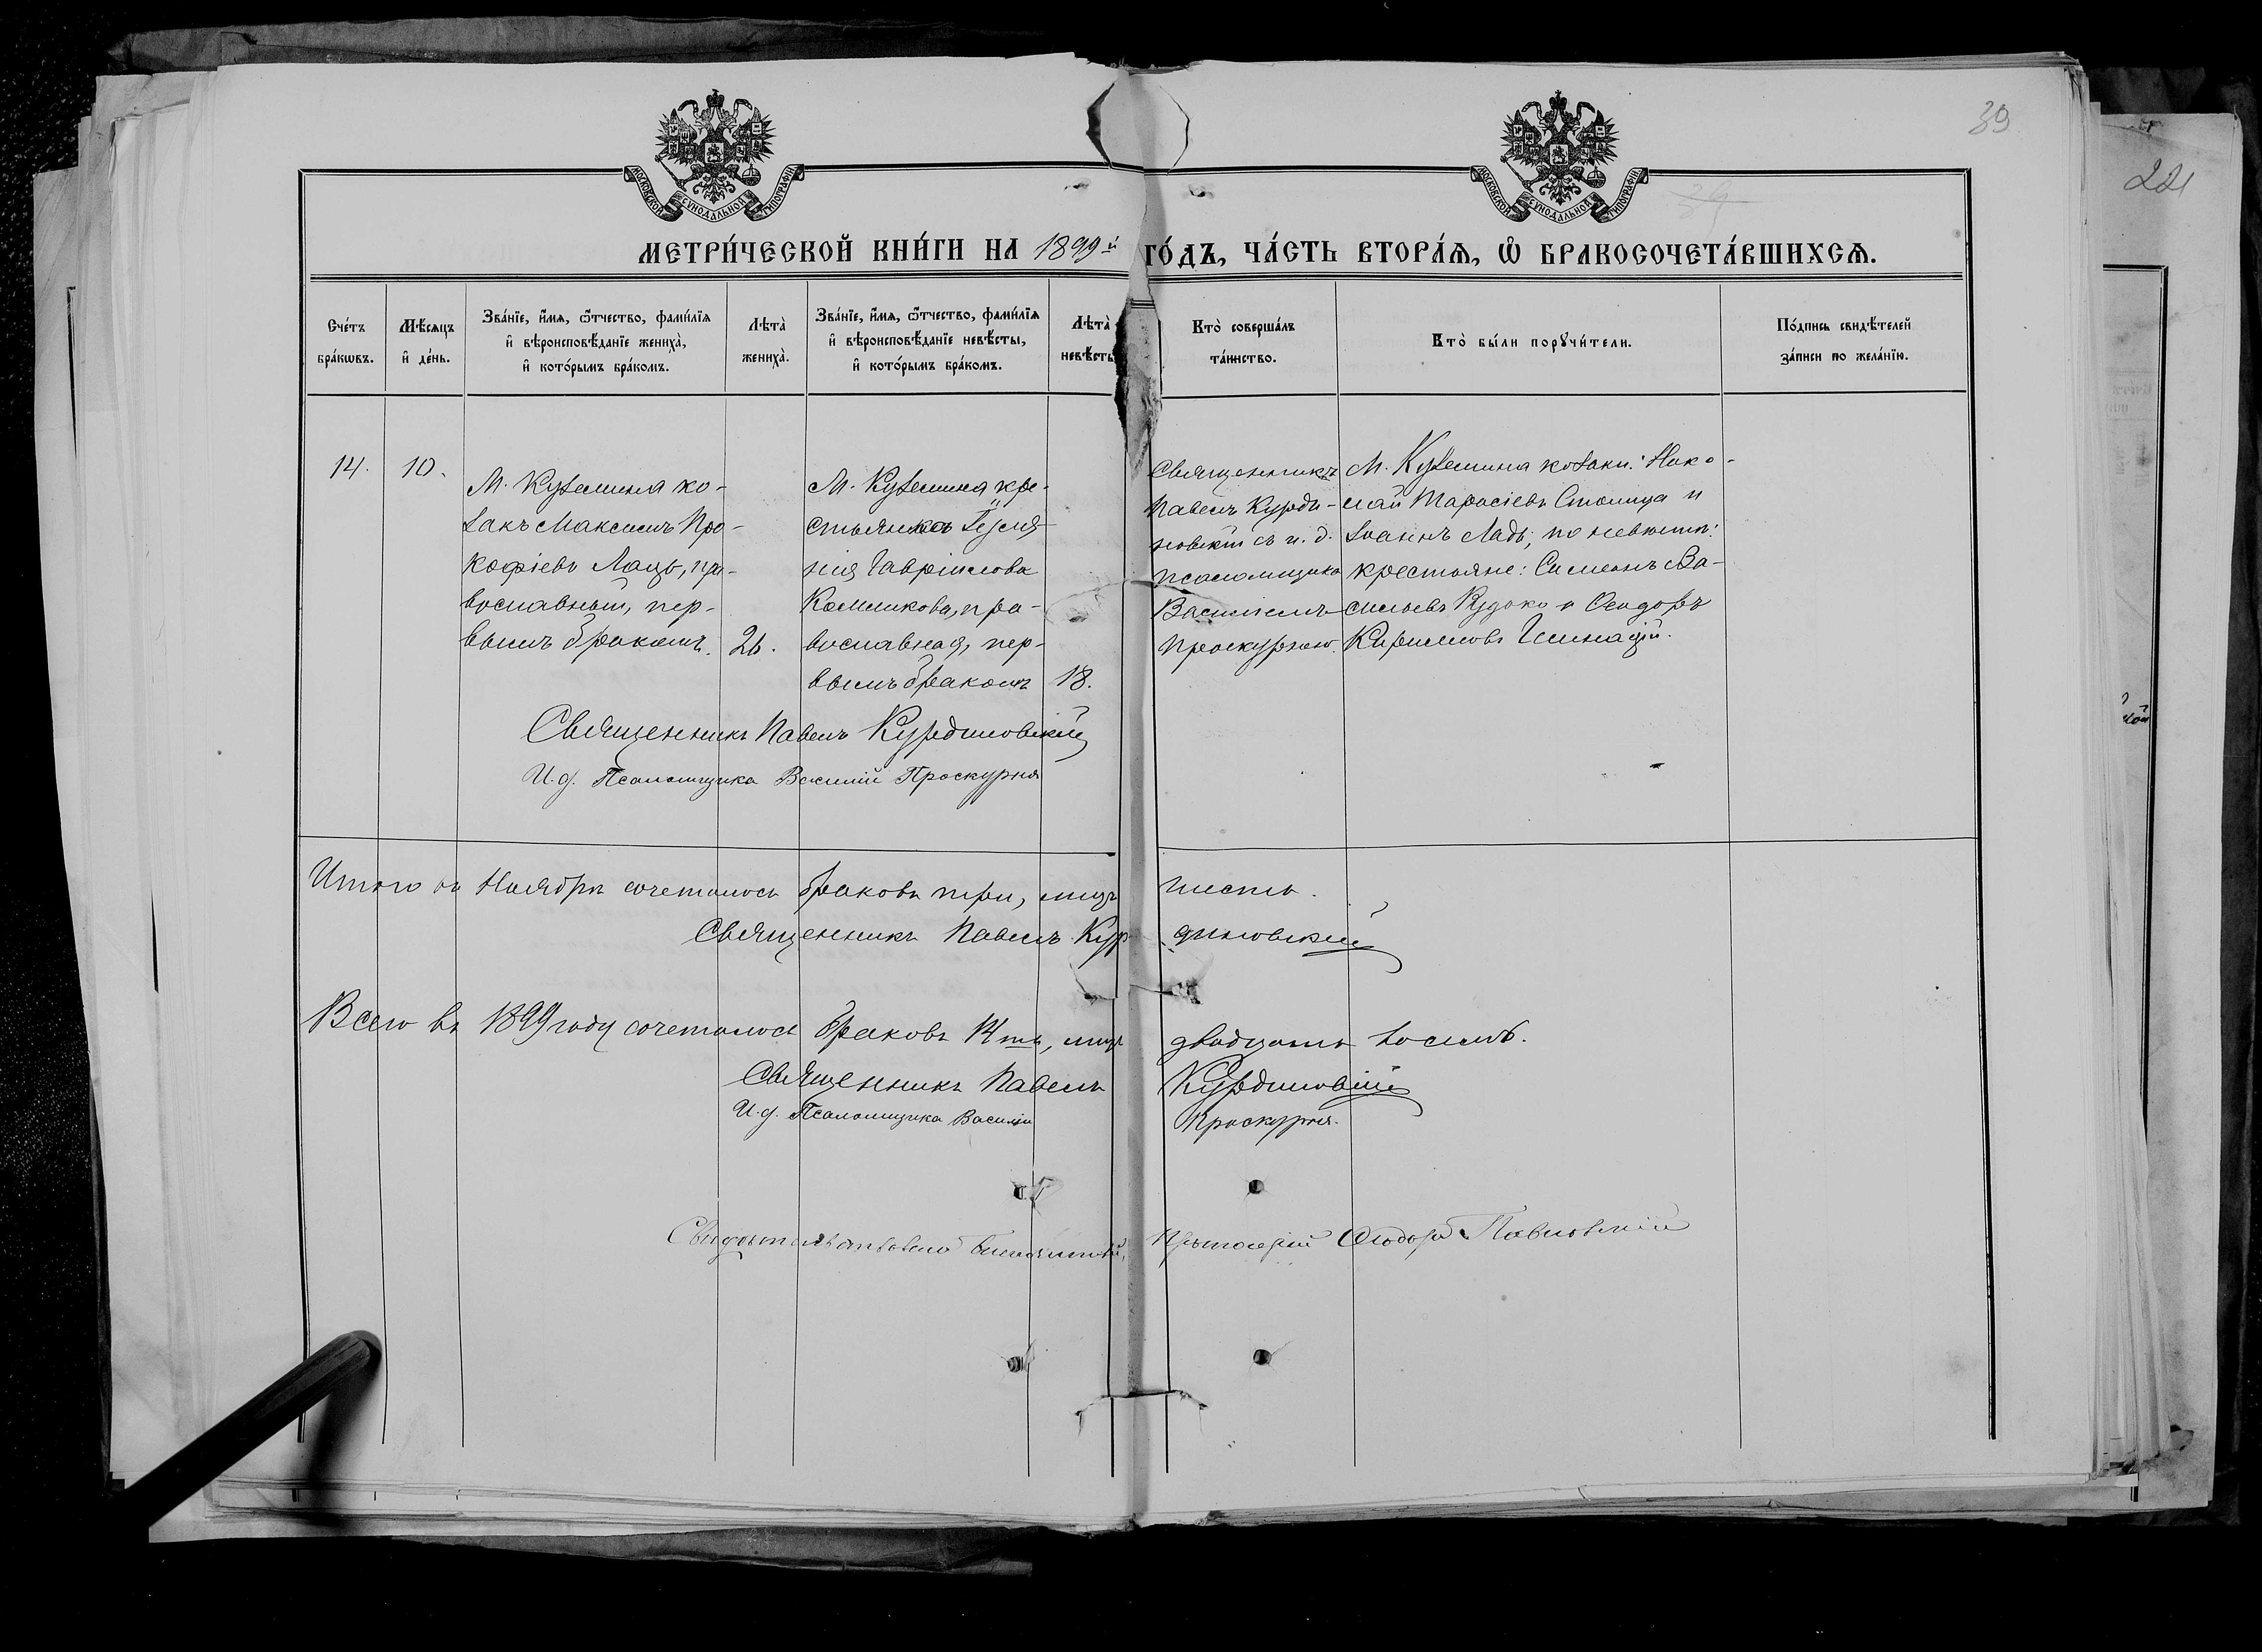 39
221
МОСКОВСКОЙ СУНОДАЛЬНОЙ ТИПОГРАФІИ
МОСКОВСКОЙ СУНОДАЛЬНОЙ ТИПОГРАФІИ
МЕТРИ́ЧЕСКОЙ КНИ́ГИ НА 1899й ГО́ДЪ, ЧА́СТЬ ВТОРА́Ѧ, Ѡ БРАКОСОЧЕТА́ВШИХСѦ.
Сче́тъ бра́кѡвъ.
Мѣ́сяцъ и де́нь.
Зва́нїе, и́мѧ, ѻ҆́тчество, фами́лїѧ и вѣроисповѣ́данїе жениха̀, и кото́рымъ бра́комъ.
Лѣта̀ жениха̀.
Зва́нїе, и́мѧ, ѻ҆́тчество, фами́лїѧ и вѣроисповѣ́данїе невѣ́сты, и кото́рымъ бра́комъ.
Лѣта̀ невѣ́сты
Кто̀ соверша́лъ та́инство.
Кто̀ бы́ли порꙋчи́тели.
По́дпись свидѣ́телей за́писи по жела́нїю.
14.
10.
М. Куземина ко-
закъ Максимъ Про-
кофіевъ Лацъ, пра-
вославный, пер-
вымъ бракомъ.
26.
М. Куземина кре-
стьянка
Гавріилова
Камликова, пра-
вославная, пер-
вымъ бракомъ
18.
Священникъ
Павелъ Курди-
новскій съ и. д.
псаломщика
Василіемъ
Проскурнею.
М. Куземина козаки: Нико-
лай Тарасіевъ Столица и
Іоаннъ Ладь; по невѣсти:
крестьяне: Симеонъ Ва-
сильевъ Кудоко и Ѳеодоръ
Кириловъ
Священникъ Павелъ Курдиновскій
И. д. Псаломщика Василій Проскурня
Итого въ Ноябрѣ сочеталось браковъ три, лицъ шесть.
Священникъ Павелъ Курдиновскій
Всего въ 1899 году сочеталось браковъ 14ть, лицъ двадцать восемь.
Священникъ Павелъ Курдиновскій
И. д. Псаломщика Василій Проскурня.
Свидѣтельствовалъ Благочинный, Протоіерей Ѳеодоръ Павловскій